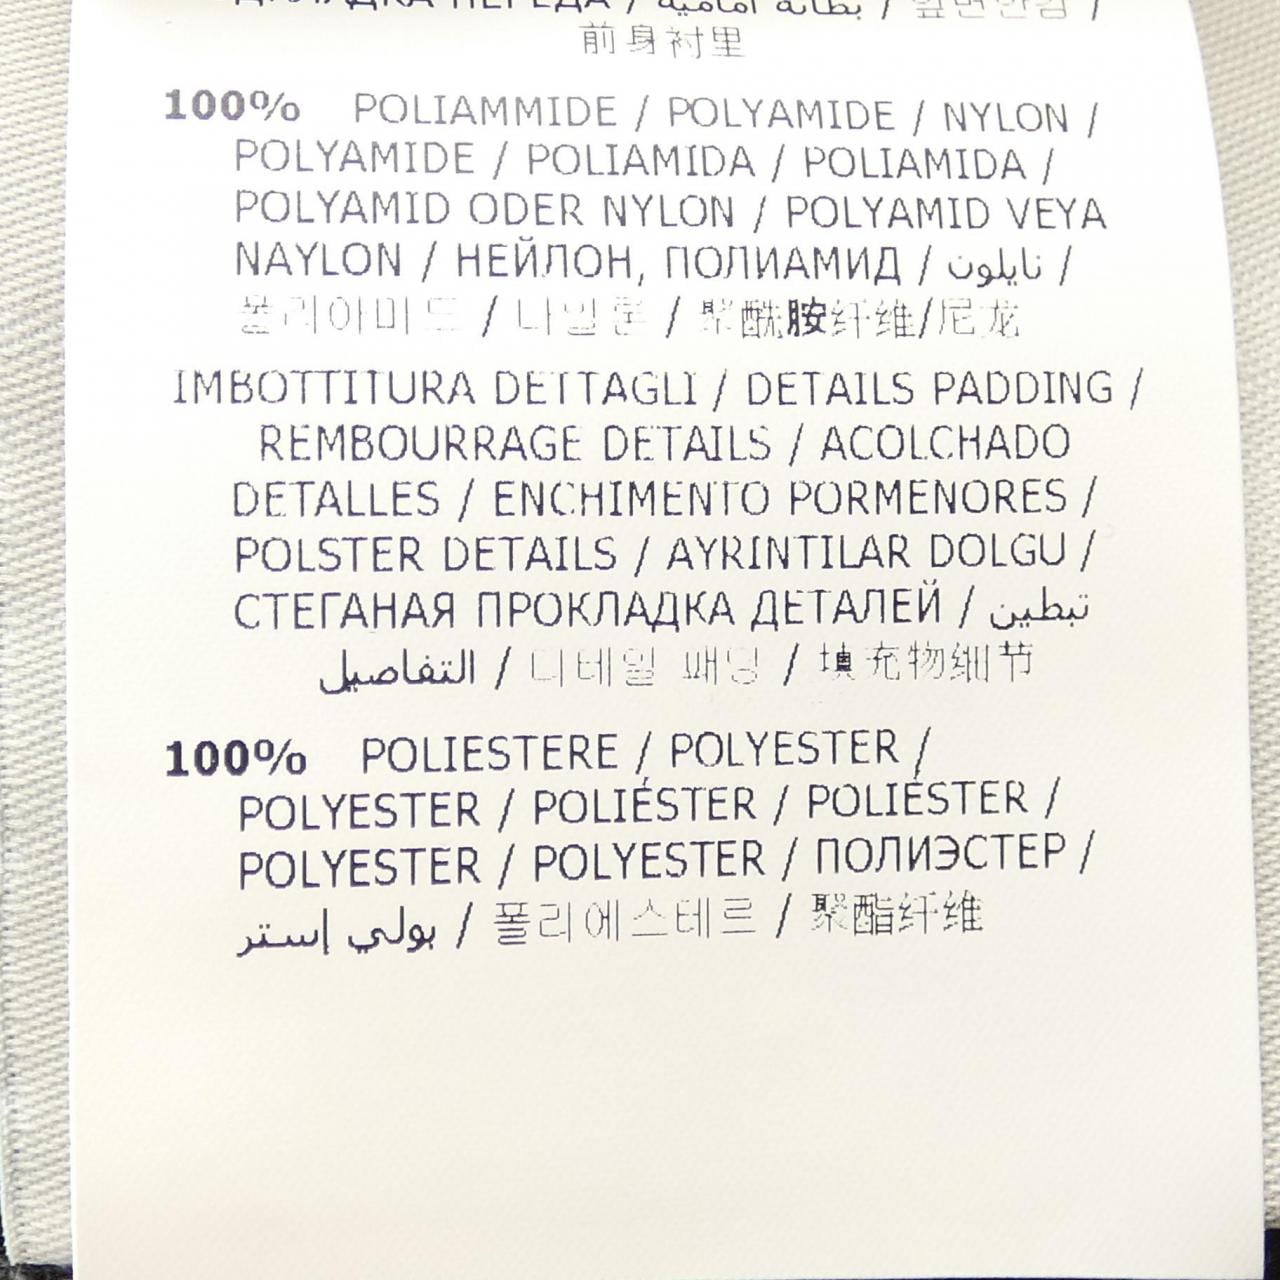 ПОДКЛАДКА ПЕРЕДА / بطانة أمامية / 앞면안감 /
前身衬里
100% POLIAMMIDE / POLYAMIDE / NYLON /
POLYAMIDE / POLIAMIDA / POLIAMIDA /
POLYAMID ODER NYLON / POLYAMID VEYA
NAYLON / НЕЙЛОН, ПОЛИАМИД / نايلون /
폴리아미드 / 나일론 / 聚酰胺纤维/尼龙
IMBOTTITURA DETTAGLI / DETAILS PADDING /
REMBOURRAGE DETAILS / ACOLCHADO
DETALLES / ENCHIMENTO PORMENORES /
POLSTER DETAILS / AYRINTILAR DOLGU /
СТЕГАНАЯ ПРОКЛАДКА ДЕТАЛЕЙ / تبطين
التفاصيل / 디테일 패딩 / 填充物细节
100% POLIESTERE / POLYESTER /
POLYESTER / POLIÉSTER / POLIÉSTER /
POLYESTER / POLYESTER / ПОЛИЭСТЕР /
بولي إستر / 폴리에스테르 / 聚酯纤维